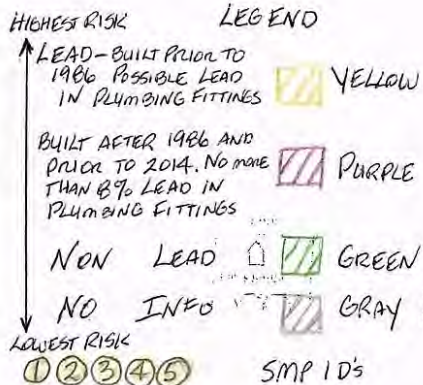 HIGHEST RISK
LEGEND
LEAD-BUILT PRIOR TO
1986 POSSIBLE LEAD
IN PLUMBING FITTINGS
YELLOW
BUILT AFTER 1986 AND
PRIOR TO 2014. NO MORE
THAN 8% LEAD IN
PLUMBING FITTINGS
PURPLE
NON LEAD
GREEN
NO INFO
GRAY
LOWEST RISK
1 2 3 4 5
SMP ID'S